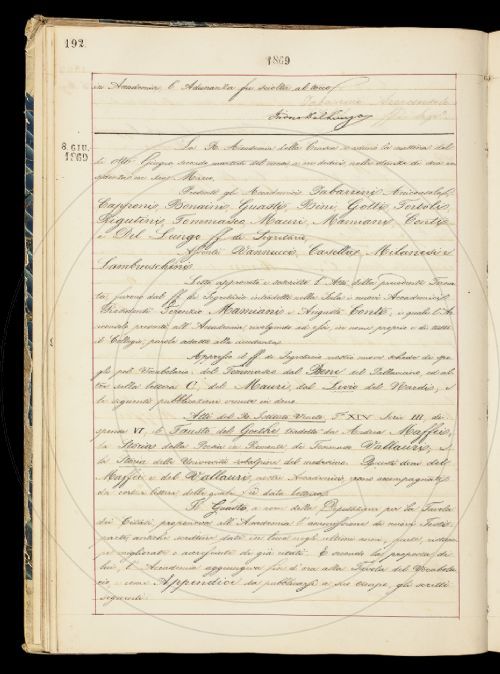 192.
1869
in Accademia l'Adunanza fu sciolta al tocco.
Tabarrini Arciconsolo
8. GIU. 1869
La R. Accademia della Crusca si adunò la mattina del
dì otto Giugno secondo martedì del mese a mezzodì nelle stanze di sua re
sidenza in San Marco.
Presenti gli Accademici Tabarrini Arciconsolo,
Capponi, Bonaini, Guasti, Bini, Gotti, Tortoli,
Rigutini, Tommaseo, Mauri, Mamiani, Conti,
e Del Lungo ff. di Segretario.
Assenti Vannucci, Casella, Milanesi e
Lambruschini.
Letto approvato e sottoscritto l'Atto della precedente Torna
ta, furono dal ff. da Segretario introdotti nella Sala i nuovi Accademici
Residenti Terenzio Mamiani e Augusto Conti, i quali l'Ar
ciconsolo presentò all'Accademia, volgendo ad essi, in nome proprio e di tutto
il Collegio, parole adatte alla circostanza.
Appresso il ff. di Segretario mostrò nuove schede da spo
gli pel Vocabolario, del Tommaseo dal Bene del Pallavicino, ed al
tre sulla lettera C; del Mauri, dal Livio del Nardi; e
le seguenti pubblicazioni venute in dono.
Atti del R. Istituto Veneto, T.º XIV Serie III, di
spensa VI; il Fausto del Goethe tradotto da Andrea Maffei;
la Storia della Poesia in Piemonte di Tommaso Vallauri, e
la Storia delle Università del Piemonte del medesimo. Questi doni del
Maffei e del Vallauri, nostri Accademici, erano accompagnati
da cortesi lettere delle quali fu data lettura.
Il Guasti a nome della Deputazione per la Tavola
dei Citati propone all'Accademia l'ammissione di nuovi Testi,
parte antichi e scrittori dati in luce negli ultimi anni, parte, ristam
pe migliorate o accresciute di già citati. E secondo la proposta di
lui l'Accademia aggiungeva fin d'ora alla Tavola del Vocabola
rio e come Appendice da pubblicarsi a suo tempo, gli scritti
seguenti.